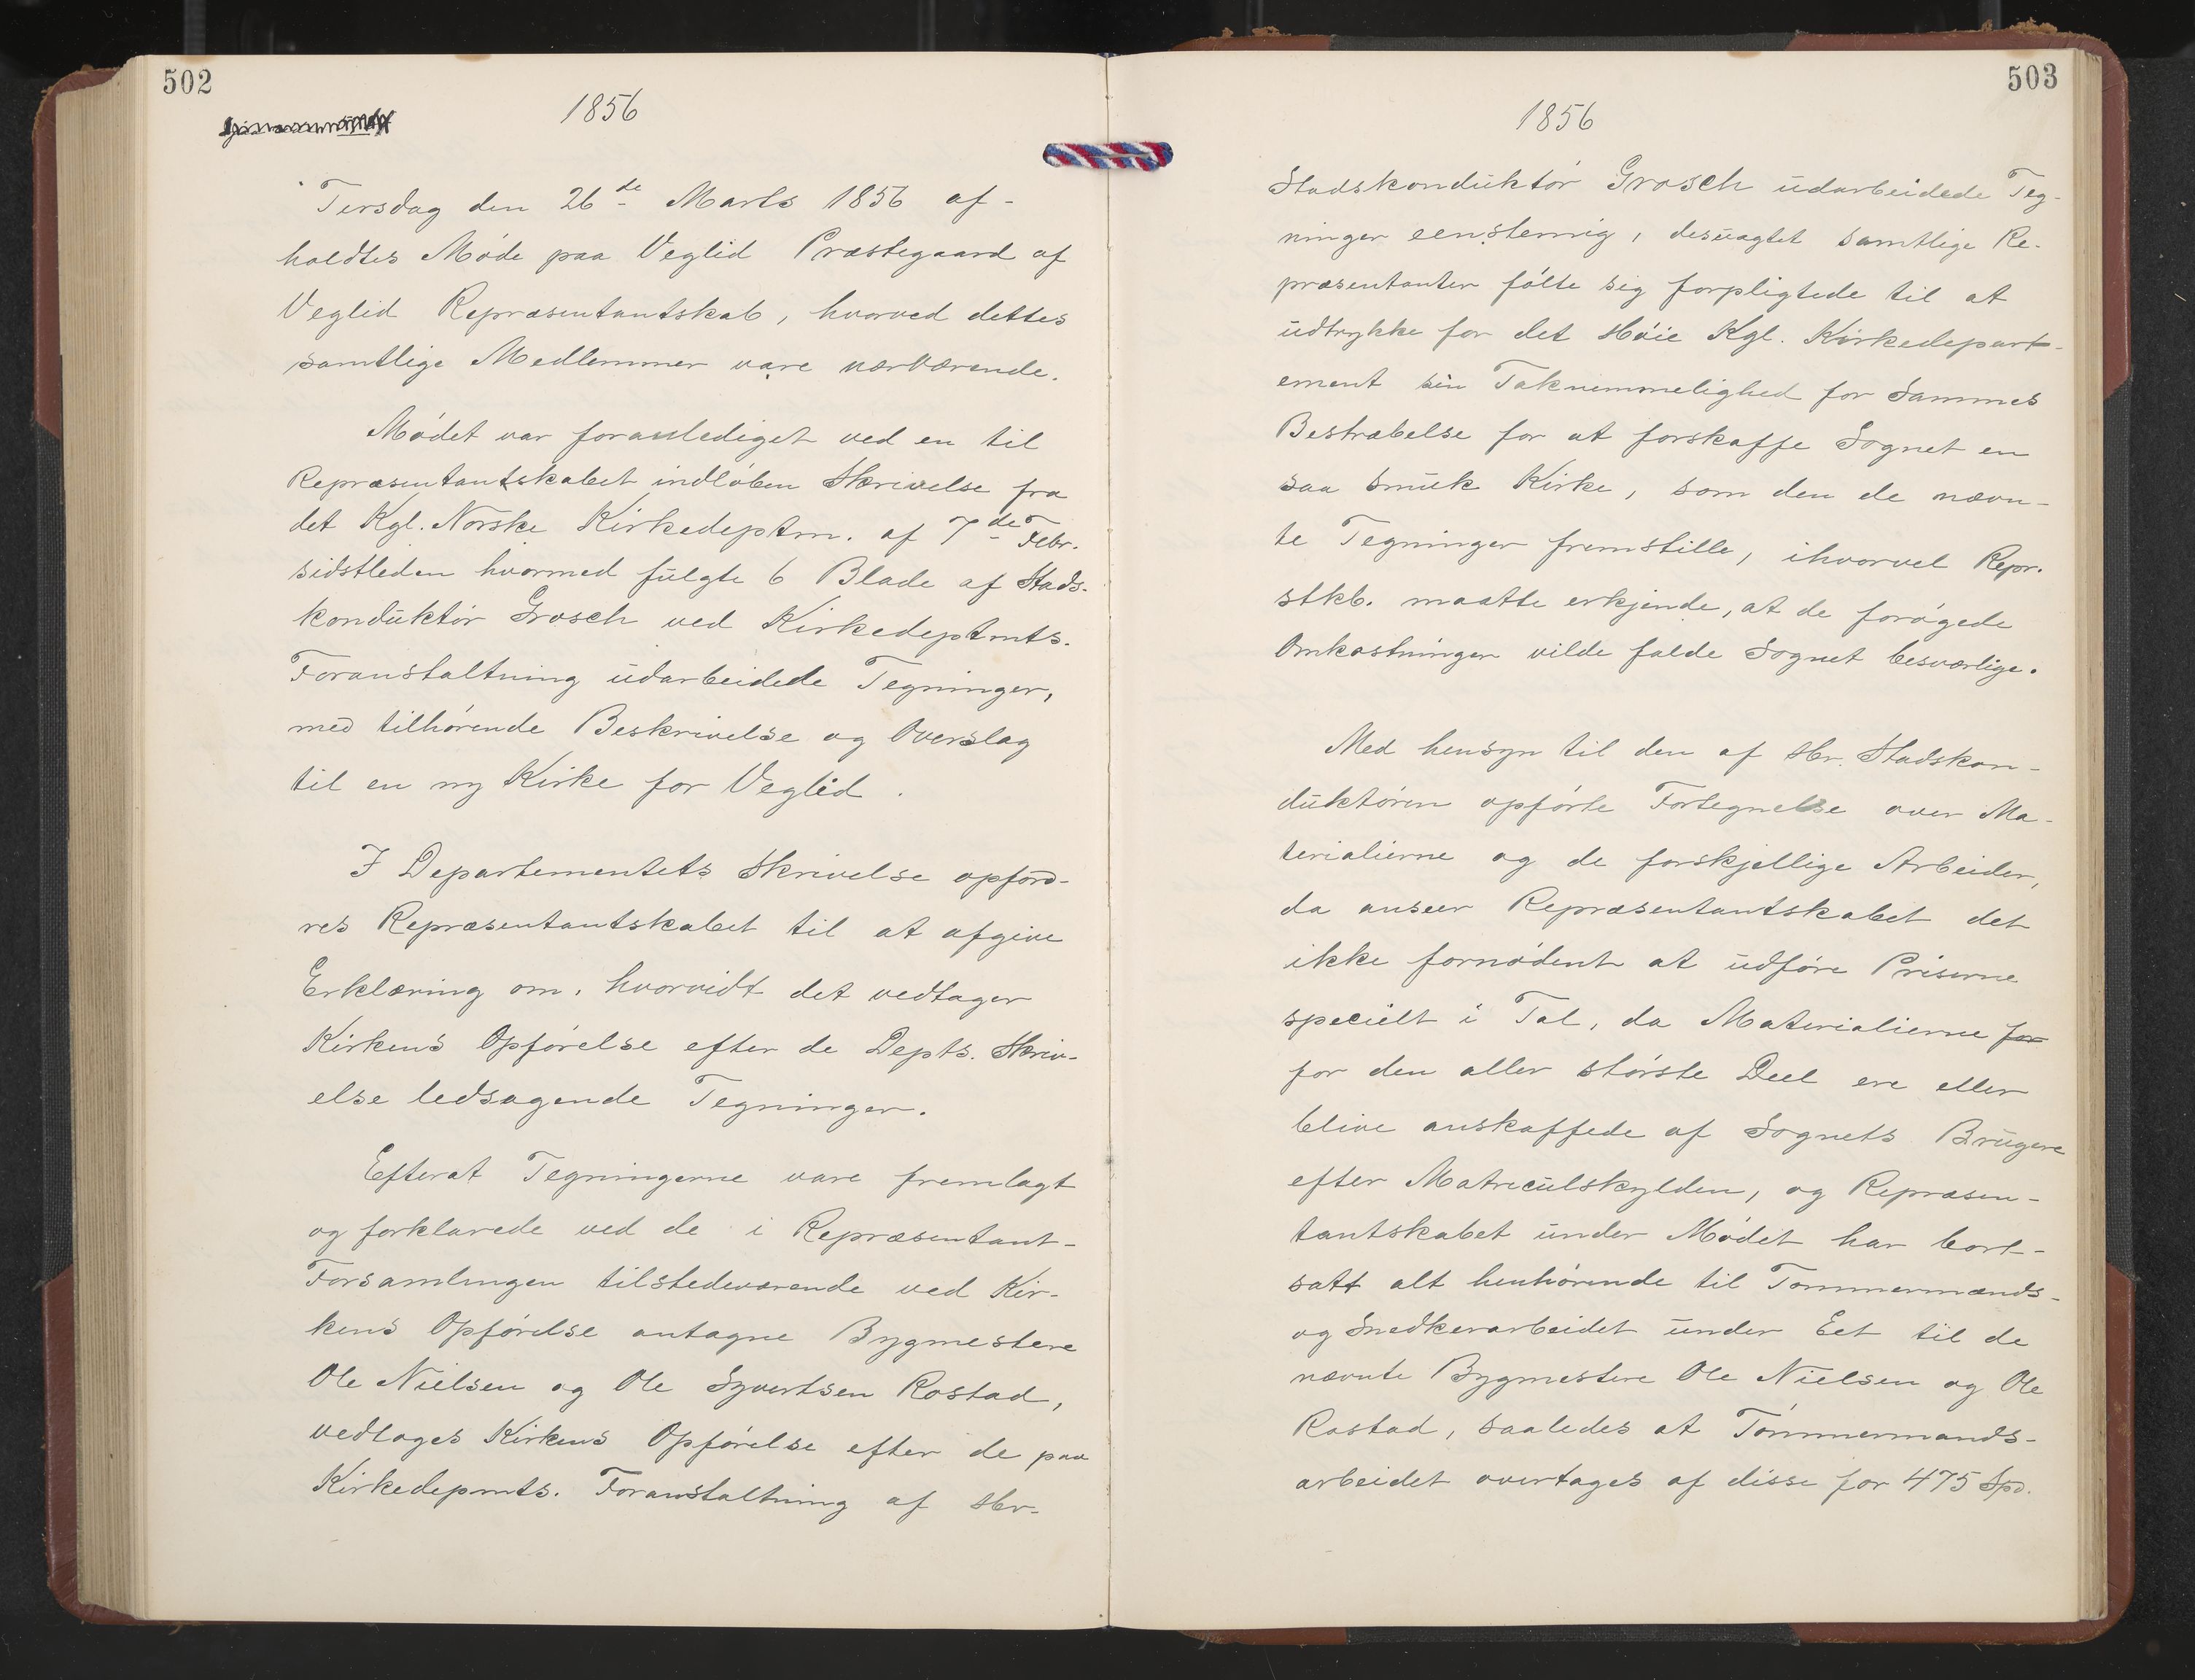 502
1856
Tirsdag den 26de Marts 1856 af-
holdtes Møde paa Veglid Præstegaard af
Veglid Repræsentantskab, hvorved dettes
samtlige Medlemmer vare nærværende.
Mødet var foranlediget ved en til
Repræsentantskabet indløben Skrivelse fra
det Kgl. Norske Kirkedeptm. af 7de Febr.
sidstleden hvormed fulgte 6 Blade af Stads-
konduktør Grosch ved Kirkedeptmts.
Foranstaltning udarbeidede Tegninger,
med tilhørende Beskrivelse og Overslag
til en ny Kirke for Veglid.
I Departementets Skrivelse opford-
res Repræsentantskabet til at afgive
Erklæring om, hvorvidt det vedtager
Kirkens Opførelse efter de Depts. Skriv-
else ledsagende Tegninger.
Efterat Tegningerne vare fremlagt
og forklarede ved de i Repræsentant-
Forsamlingen tilstedeværende ved Kir-
kens Opførelse antagne Bygmestere
Ole Nielsen og Ole Syvertsen Rostad,
vedtoges Kirkens Opførelse efter de paa
Kirkedepmts. Foranstaltning af Hr.
503
1856
Stadskonduktør Grosch udarbeidede Teg-
ninger eenstemig, desuagtet samtlige Re-
præsentanter følte sig forpligtede til at
udtrykke for det Høie Kgl. Kirkedepart-
ement sin Taknemmelighed for Sammes
Bestræbelse for at forskaffe Sognet en
saa smuk Kirke, som den de nævn-
te Tegninger fremstille, ihvorvel Repr.
stkb. maatte erkjende, at de forøgede
Omkostninger vilde falde Sognet besværlige.
Med hensyn til den af Hr. Stadskon-
duktøren opførte Fortegnelse over Ma-
terialierne og de forskjellige Arbeider,
da anseer Repræsentantskabet det
ikke fornødent at udføre Priserne
specielt i Tal, da Materialierne for
for den aller største Deel ere eller
blive anskaffede af Sognets Brugere
efter Matreculskylden, og Repræsen-
tantskabet under Mødet har bort-
satt alt henhørende til Tømmermænds-
og Snedkerarbeidet under Eet til de
nævnte Bygmestere Ole Nielsen og Ole
Rostad, saaledes at Tømmermands-
arbeidet overtages af disse for 475 Spd.